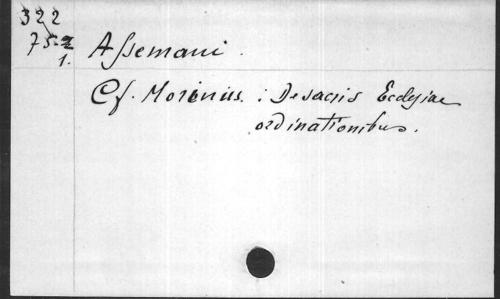 322
75-2
1.
Assemani.
Cf. Morinus. : De sacris Ecclesiae
ordinationibus.